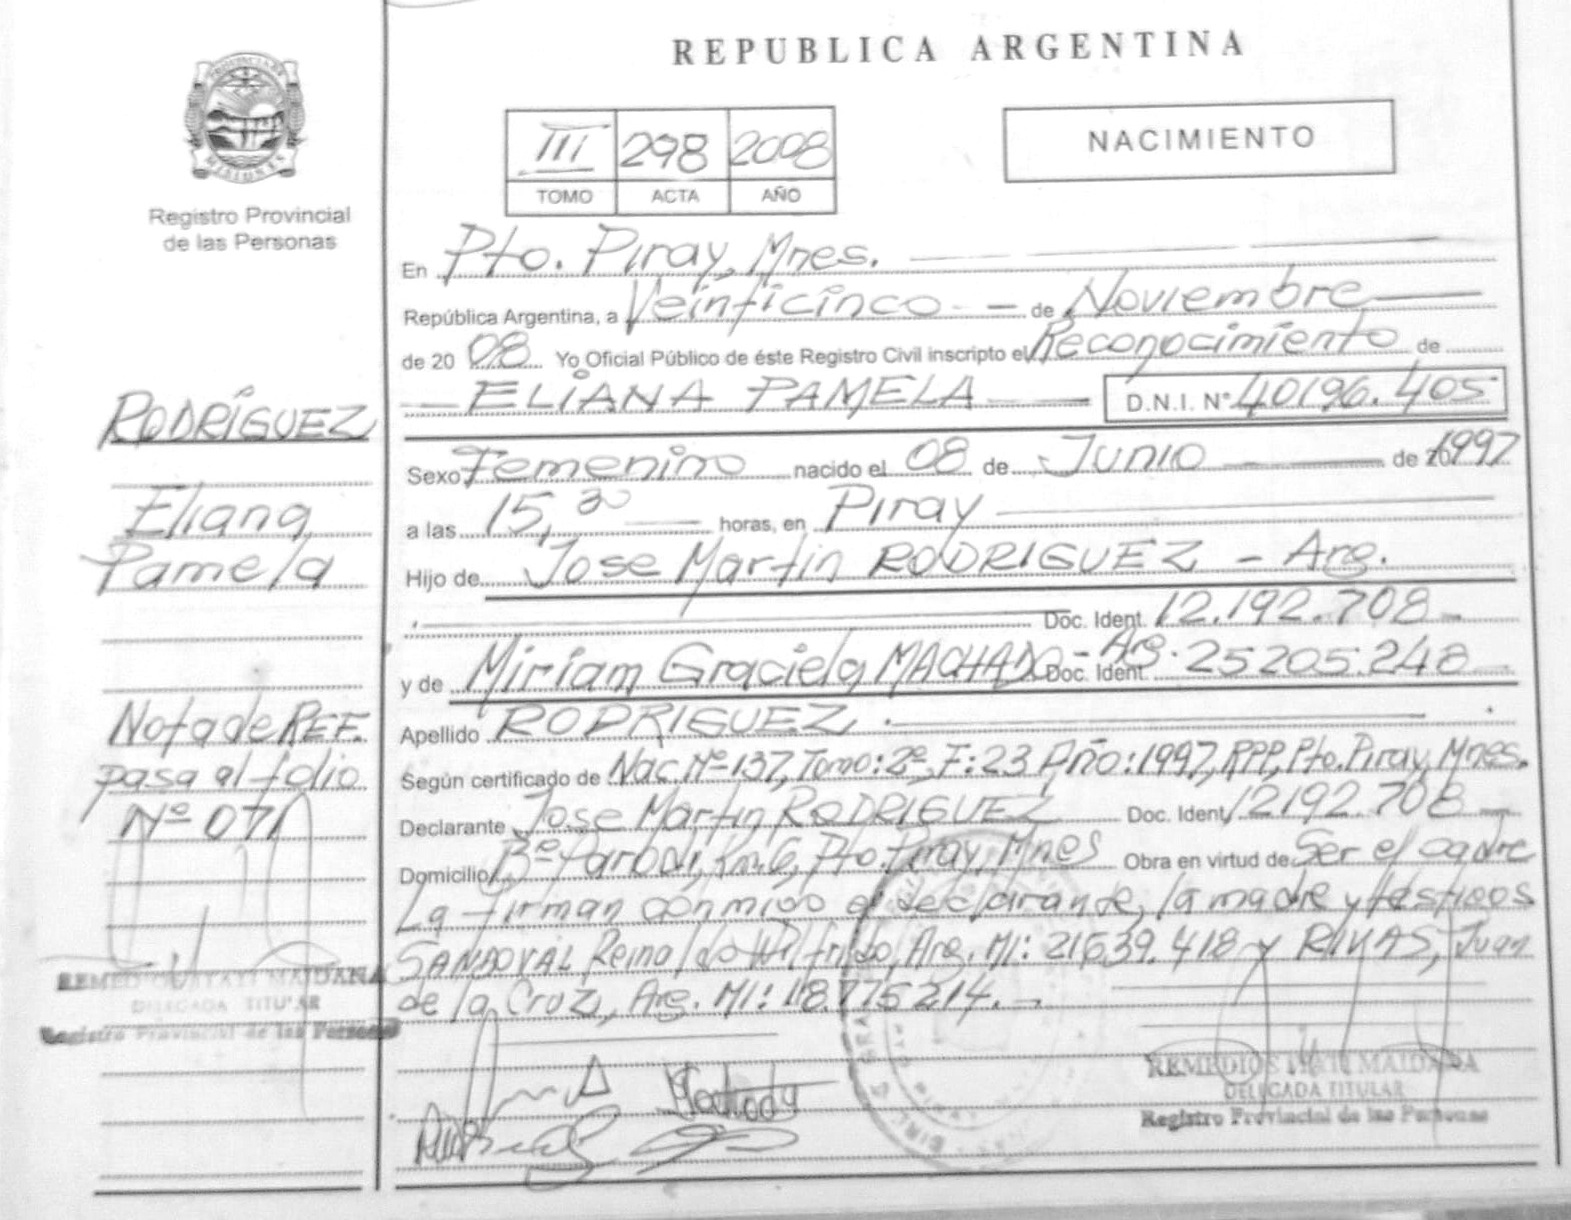 REPUBLICA ARGENTINA
PROVINCIA DE MISIONES
Registro Provincial
de las Personas
III 298 2008
TOMO ACTA AÑO
NACIMIENTO
En Pto. Piray, Mnes.
República Argentina, a Veinticinco de Noviembre
de 2008 Yo Oficial Público de éste Registro Civil inscripto el Reconocimiento de
ELIANA PAMELA D.N.I. N° 40196.405
Sexo Femenino nacido el 08 de Junio de 1997
a las 15,30 horas, en Piray
Hijo de Jose Martin RODRIGUEZ - Arg.
Doc. Ident. 12.192.708
y de Miriam Graciela MACHADO - Arg. Doc. Ident. 25205.248
Apellido RODRIGUEZ
Según certificado de Nac. Nº 137, Tomo: 2º, F: 23 Año: 1997, RPP, Pto. Piray, Mnes.
Declarante Jose Martin RODRIGUEZ Doc. Ident. 12192.708
Domicilio Bº Parodi, Km. 6, Pto. Piray, Mnes Obra en virtud de Ser el padre
La firman conmigo el declarante, la madre y testigos
SANDOVAL Reinaldo Wilfrido, Arg. MI: 21639.418 y RIVAS, Juan
de la Cruz, Arg. MI: 18.775214.
RODRÍGUEZ
Eliana
Pamela
Nota de REF.
pasa al folio
Nº 071
REMEDIOS ITATI MAIDANA
DELEGADA TITULAR
Registro Provincial de las Personas
REMEDIOS ITATI MAIDANA
DELEGADA TITULAR
Registro Provincial de las Personas